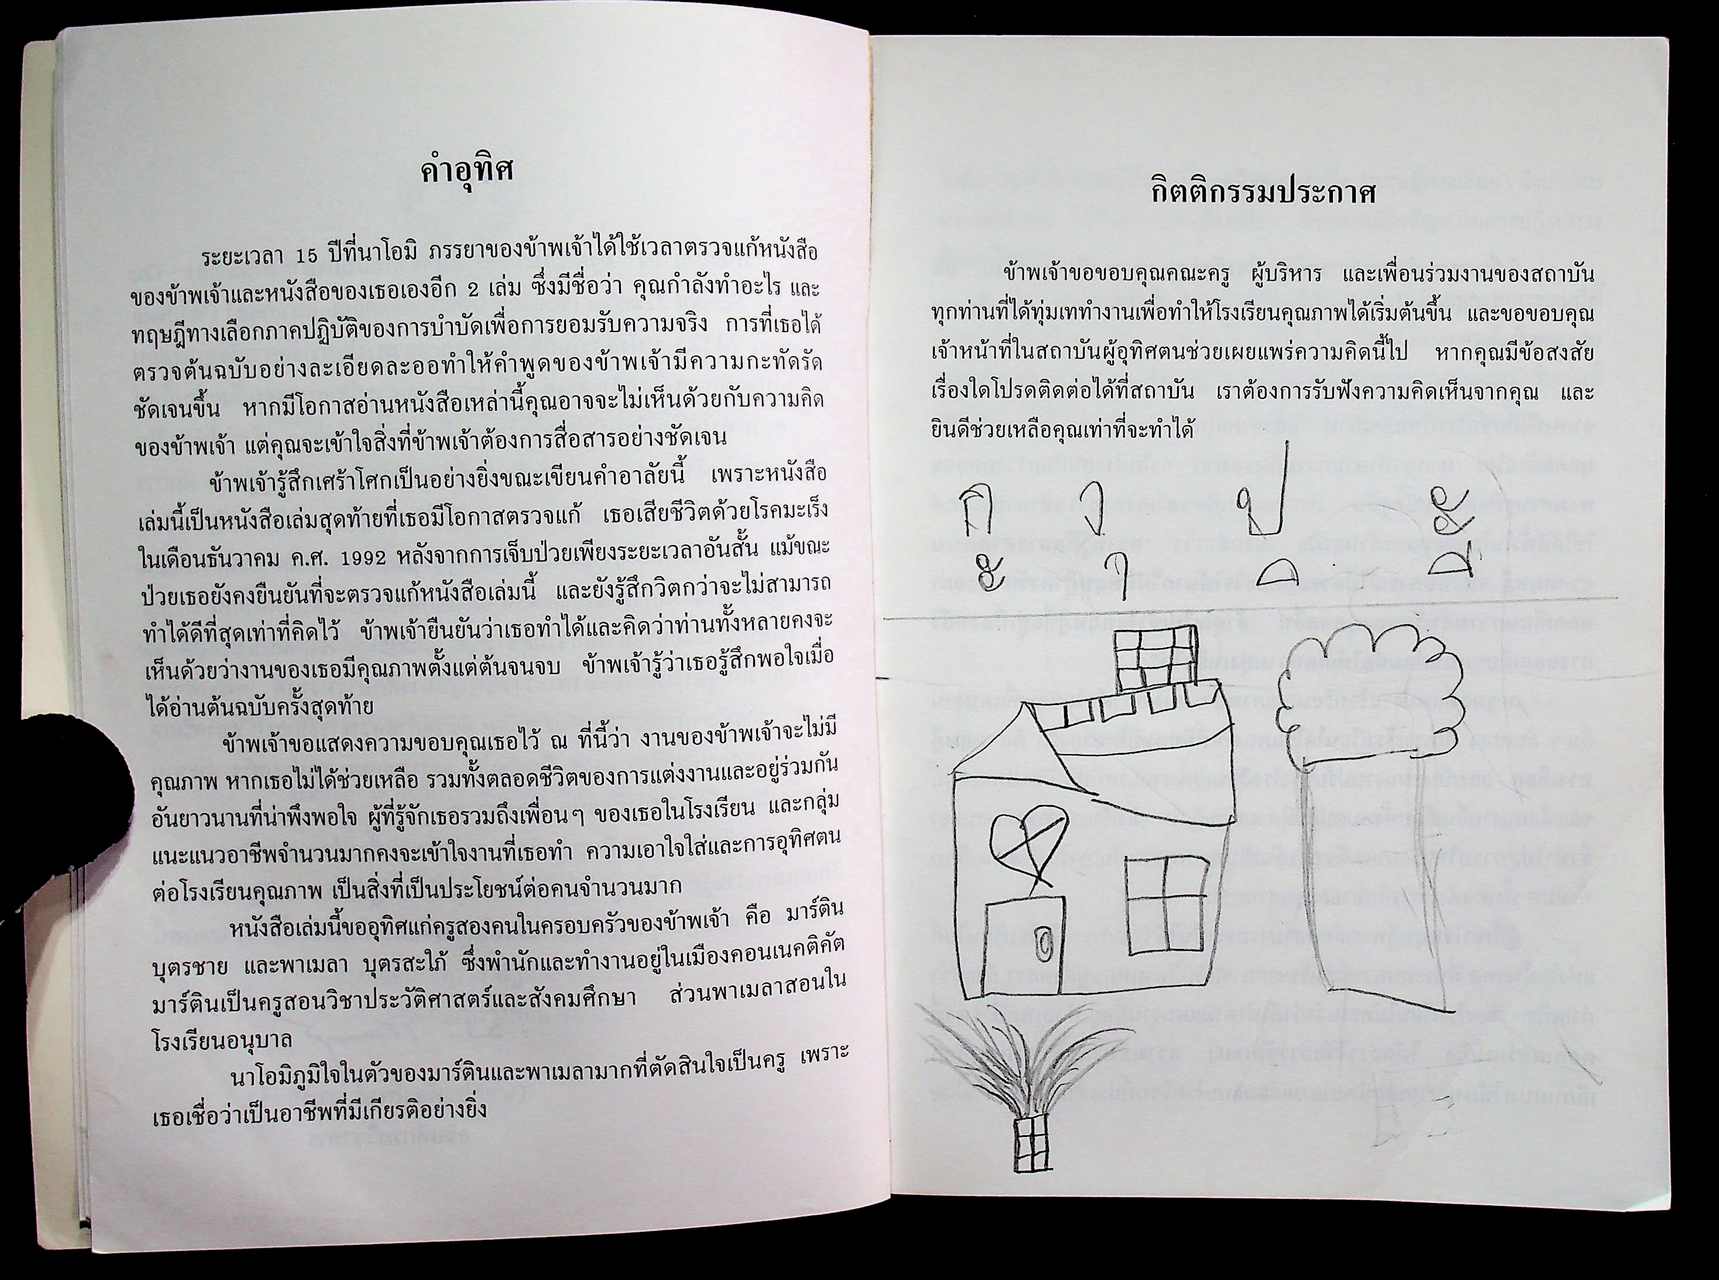 คำอุทิศ
ระยะเวลา 15 ปีที่นาโอมิ ภรรยาของข้าพเจ้าได้ใช้เวลาตรวจแก้หนังสือ
ของข้าพเจ้าและหนังสือของเธอเองอีก 2 เล่ม ซึ่งมีชื่อว่า คุณกำลังทำอะไร และ
ทฤษฎีทางเลือกภาคปฏิบัติของการบำบัดเพื่อการยอมรับความจริง การที่เธอได้
ตรวจต้นฉบับอย่างละเอียดละออทำให้คำพูดของข้าพเจ้ามีความกะทัดรัด
ชัดเจนขึ้น หากมีโอกาสอ่านหนังสือเหล่านี้คุณอาจจะไม่เห็นด้วยกับความคิด
ของข้าพเจ้า แต่คุณจะเข้าใจสิ่งที่ข้าพเจ้าต้องการสื่อสารอย่างชัดเจน
ข้าพเจ้ารู้สึกเศร้าโศกเป็นอย่างยิ่งขณะเขียนคำอาลัยนี้ เพราะหนังสือ
เล่มนี้เป็นหนังสือเล่มสุดท้ายที่เธอมีโอกาสตรวจแก้ เธอเสียชีวิตด้วยโรคมะเร็ง
ในเดือนธันวาคม ค.ศ. 1992 หลังจากการเจ็บป่วยเพียงระยะเวลาอันสั้น แม้ขณะ
ป่วยเธอยังคงยืนยันที่จะตรวจแก้หนังสือเล่มนี้ และยังรู้สึกวิตกว่าจะไม่สามารถ
ทำได้ดีที่สุดเท่าที่คิดไว้ ข้าพเจ้ายืนยันว่าเธอทำได้และคิดว่าท่านทั้งหลายคงจะ
เห็นด้วยว่างานของเธอมีคุณภาพตั้งแต่ต้นจนจบ ข้าพเจ้ารู้ว่าเธอรู้สึกพอใจเมื่อ
ได้อ่านต้นฉบับครั้งสุดท้าย
ข้าพเจ้าขอแสดงความขอบคุณเธอไว้ ณ ที่นี้ว่า งานของข้าพเจ้าจะไม่มี
คุณภาพ หากเธอไม่ได้ช่วยเหลือ รวมทั้งตลอดชีวิตของการแต่งงานและอยู่ร่วมกัน
อันยาวนานที่น่าพึงพอใจ ผู้ที่รู้จักเธอรวมถึงเพื่อนๆ ของเธอในโรงเรียน และกลุ่ม
แนะแนวอาชีพจำนวนมากคงจะเข้าใจงานที่เธอทำ ความเอาใจใส่และการอุทิศตน
ต่อโรงเรียนคุณภาพ เป็นสิ่งที่เป็นประโยชน์ต่อคนจำนวนมาก
หนังสือเล่มนี้ขออุทิศแก่ครูสองคนในครอบครัวของข้าพเจ้า คือ มาร์ติน
บุตรชาย และพาเมลา บุตรสะใภ้ ซึ่งพำนักและทำงานอยู่ในเมืองคอนเนคติคัต
มาร์ตินเป็นครูสอนวิชาประวัติศาสตร์และสังคมศึกษา ส่วนพาเมลาสอนใน
โรงเรียนอนุบาล
นาโอมิภูมิใจในตัวของมาร์ตินและพาเมลามากที่ตัดสินใจเป็นครู เพราะ
เธอเชื่อว่าเป็นอาชีพที่มีเกียรติอย่างยิ่ง
กิตติกรรมประกาศ
ข้าพเจ้าขอขอบคุณคณะครู ผู้บริหาร และเพื่อนร่วมงานของสถาบัน
ทุกท่านที่ได้ทุ่มเททำงานเพื่อทำให้โรงเรียนคุณภาพได้เริ่มต้นขึ้น และขอขอบคุณ
เจ้าหน้าที่ในสถาบันผู้อุทิศตนช่วยเผยแพร่ความคิดนี้ไป หากคุณมีข้อสงสัย
เรื่องใดโปรดติดต่อได้ที่สถาบัน เราต้องการรับฟังความคิดเห็นจากคุณ และ
ยินดีช่วยเหลือคุณเท่าที่จะทำได้
ก ง ป ะ
ะ า ิ ี